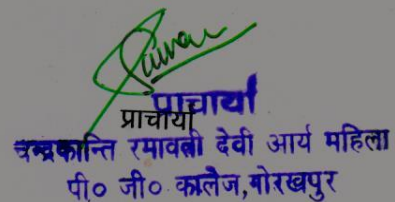 प्राचार्या
प्राचार्या
चन्द्रकान्ति रमावती देवी आर्य महिला
पी० जी० कालेज,गोरखपुर